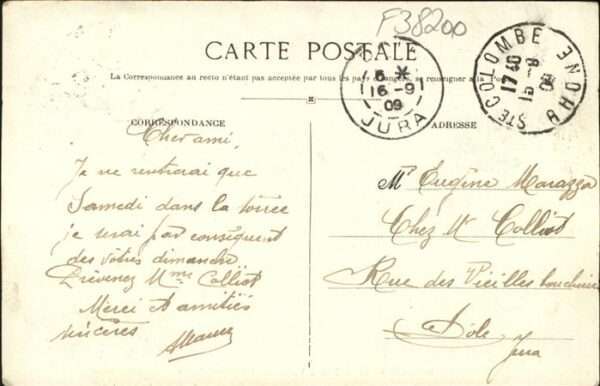 F38200
CARTE POSTALE
La Correspondance au recto n'étant pas acceptée par tous les pays étrangers, se renseigner à la Poste
CORRESPONDANCE
ADRESSE
16-9
09
JURA
STE COLOMBE
RHONE
17 40
15-9
09
Cher ami,
Je ne rentrerai que
Samedi dans la soirée
je serai par conséquent
des vôtres dimanche
Prévenez Mme Colliot
Merci et amitiés
sincères
Mr Eugène Marazza
Chez Mr Colliot
Rue des Vieilles boucheries
Dole
Jura